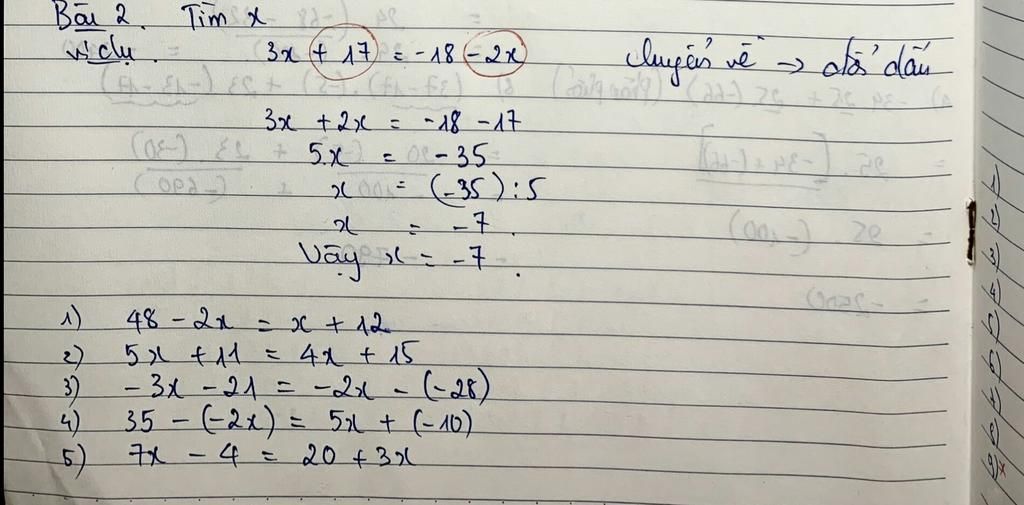 Bài 2. Tìm x
ví dụ. 3x + 17 = -18 - 2x chuyển vế → đổi dấu
3x + 2x = -18 - 17
5.x = -35
x = (-35) : 5
x = -7.
Vậy x = -7.
1) 48 - 2x = x + 12
2) 5x + 11 = 4x + 15
3) -3x - 21 = -2x - (-28)
4) 35 - (-2x) = 5x + (-10)
5) 7x - 4 = 20 + 3x